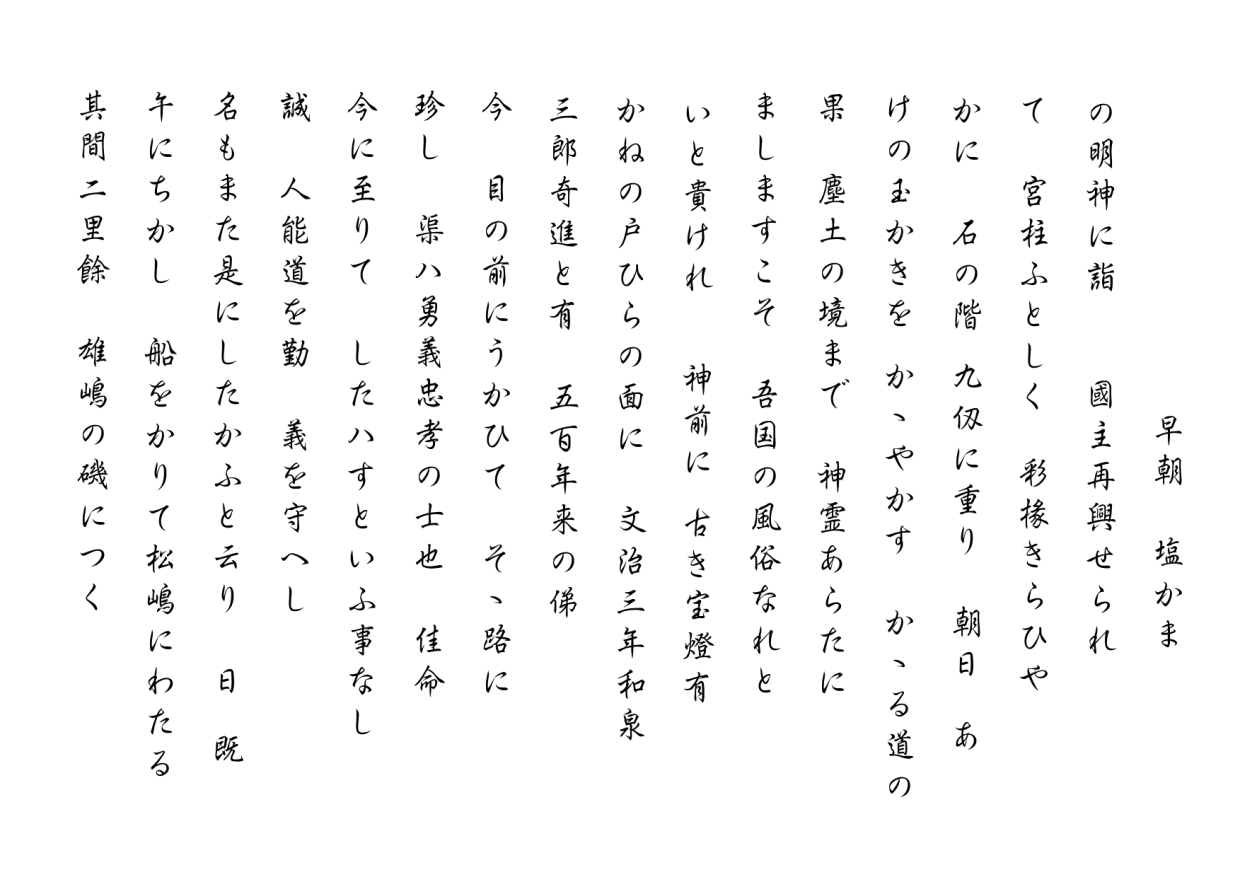 早朝　塩かま
の明神に詣　　國主再興せられ
て　宮柱ふとしく　彩椽きらひや
かに　石の階　九仭に重り　朝日　あ
けの玉かきを　かゝやかす　かゝる道の
果　塵土の境まで　神霊あらたに
ましますこそ　吾国の風俗なれと
いと貴けれ　　神前に　古き宝燈有
かねの戸ひらの面に　文治三年和泉
三郎奇進と有　五百年来の俤
今　目の前にうかひて　そゝ路に
珍し　渠ハ勇義忠孝の士也　佳命
今に至りて　したハすといふ事なし
誠　人能道を勤　義を守へし
名もまた是にしたかふと云り　日　既
午にちかし　船をかりて松嶋にわたる
其間二里餘　雄嶋の磯につく